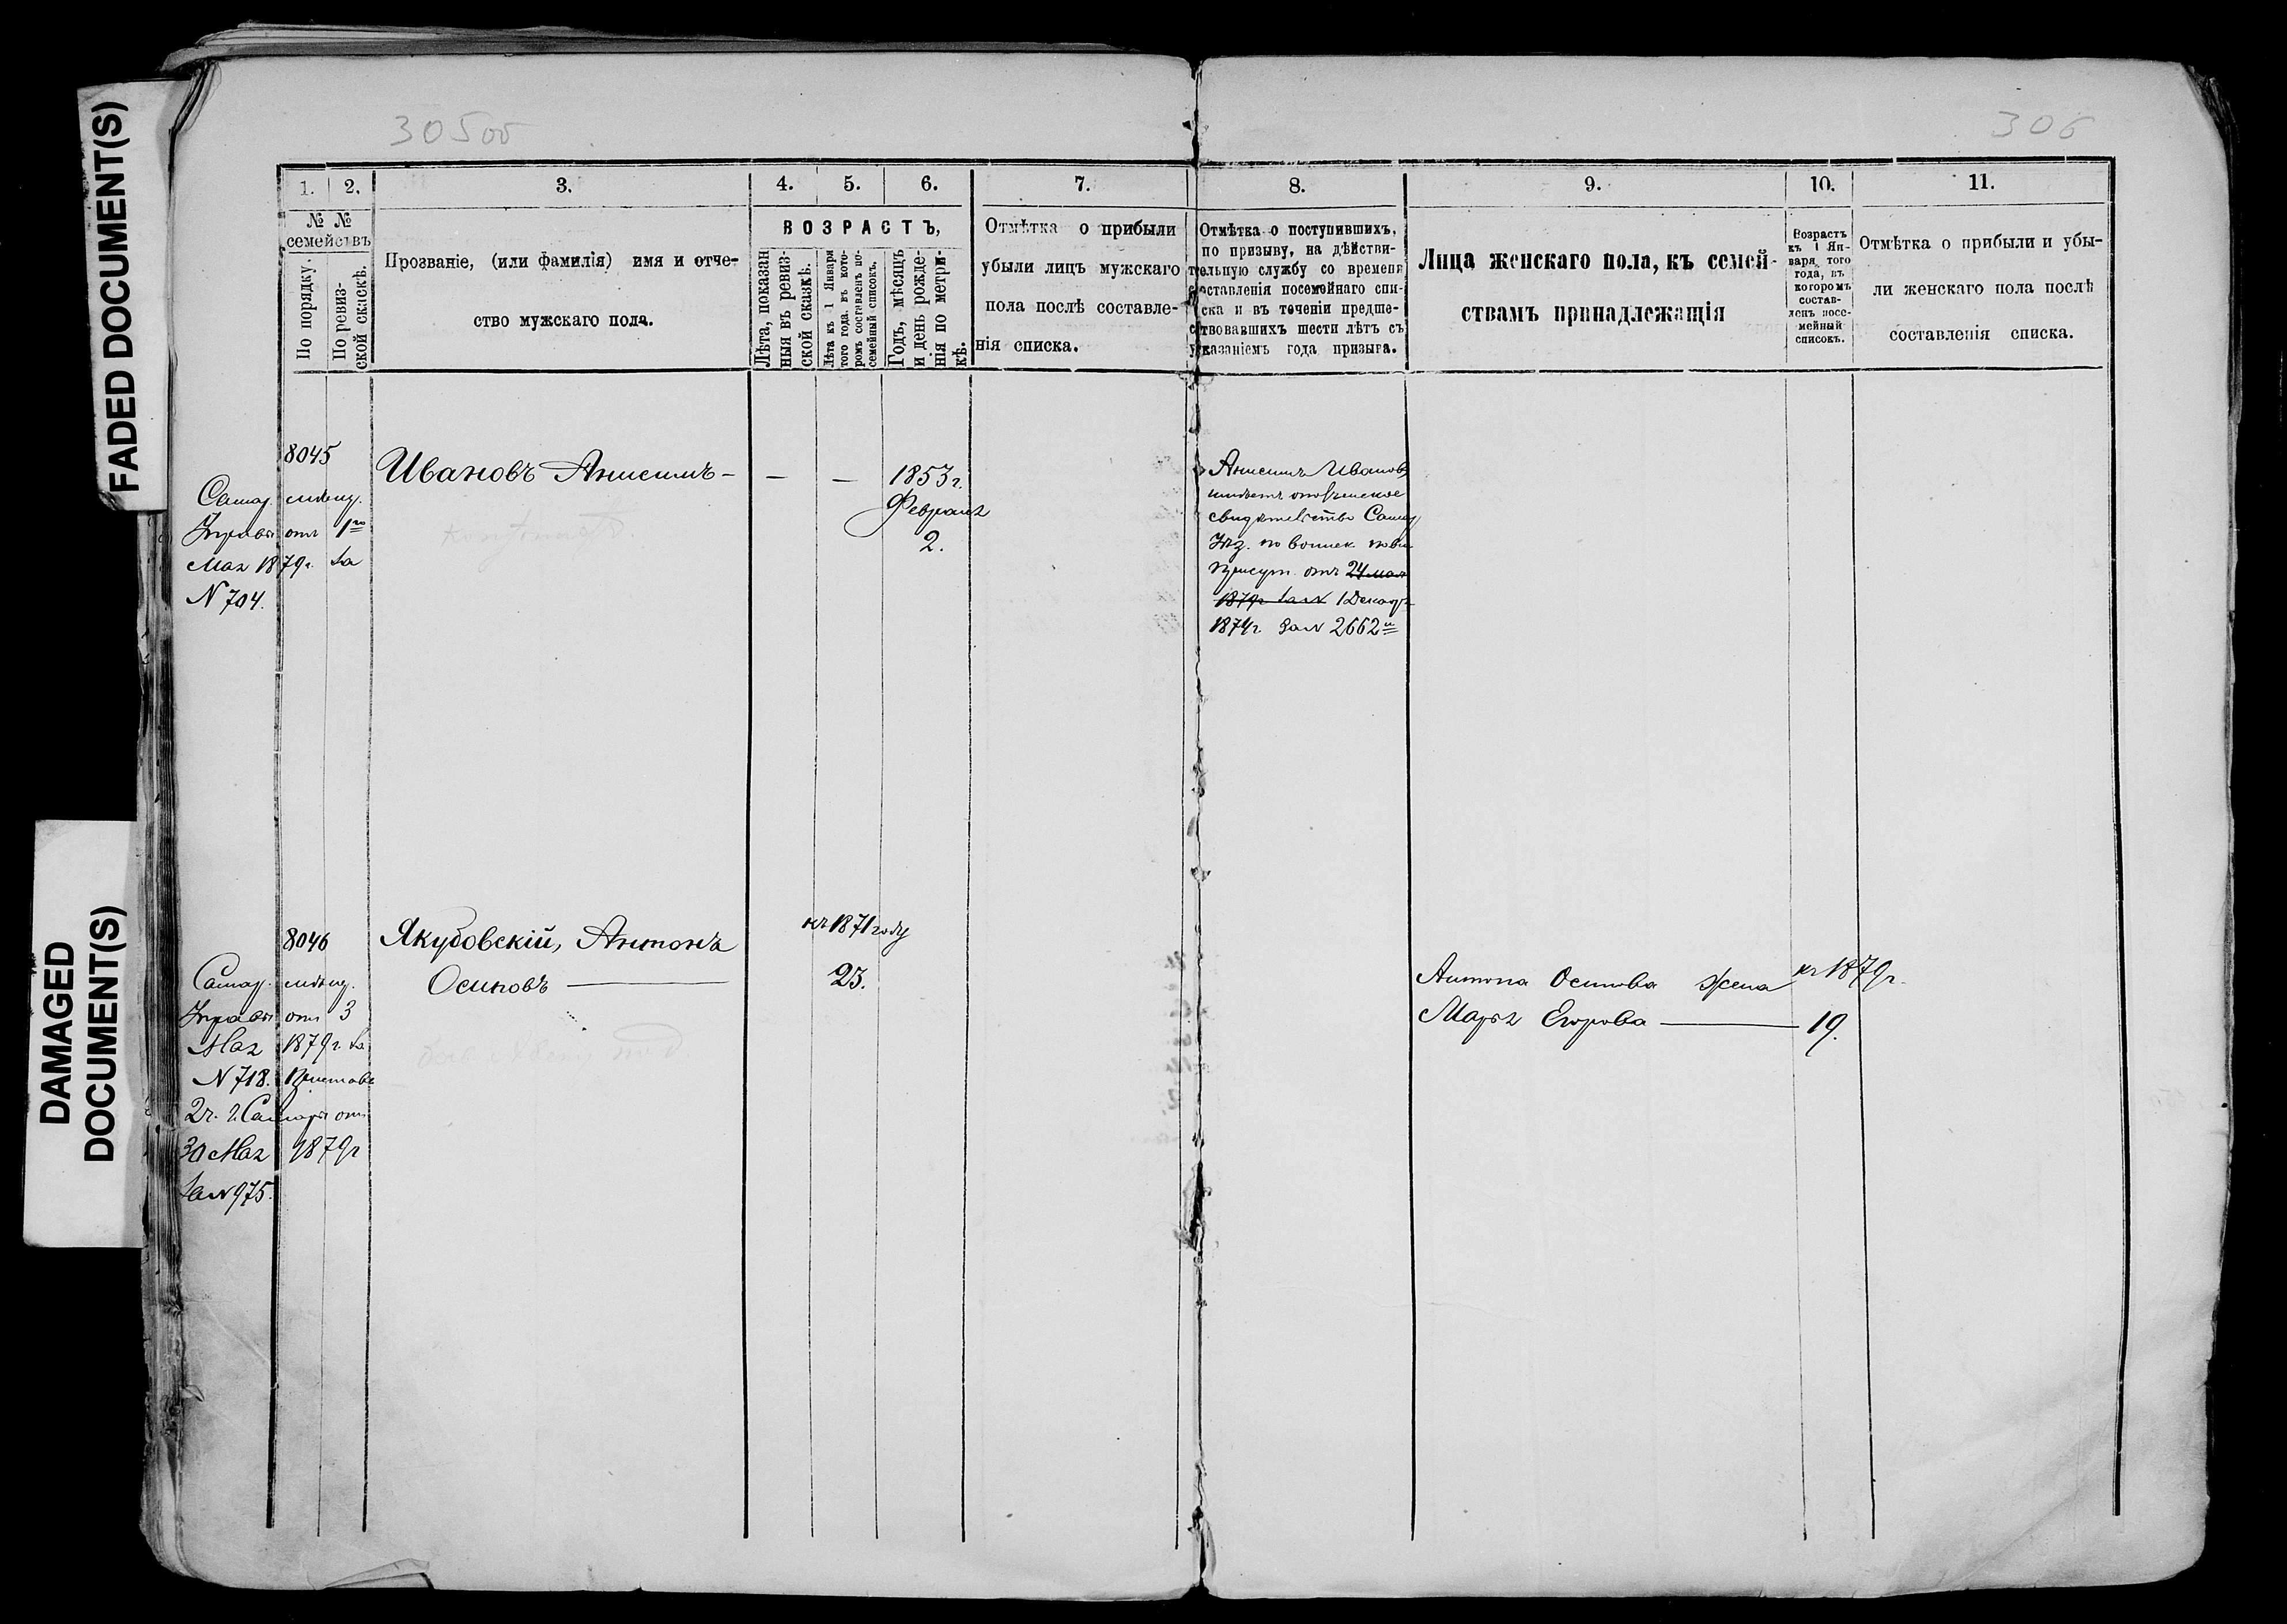 FADED DOCUMENT(S)
DAMAGED
DOCUMENT(S)
305об
306
1.
2.
3.
4.
5.
6.
7.
8.
9.
10.
11.
№ №
семействъ
По порядку.
По ревиз-
ской сказкѣ.
Прозваніе, (или фамилія) имя и отче-
ство мужскаго пола.
ВОЗРАСТЪ,
Лѣта, показан
ныя въ ревиз-
ской сказкѣ.
Лѣта къ 1 Января
того года, въ кото-
ромъ составленъ по-
семейный списокъ.
Годъ, мѣсяцъ
и день рожде-
нія по метри-
кѣ.
Отмѣтка о прибыли
убыли лицъ мужскаго
пола послѣ составле-
нія списка.
Отмѣтка о поступившихъ,
по призыву, на дѣйстви-
тельную службу со времени
составленія посемейнаго спи-
ска и въ теченіи предше-
ствовавшихъ шести лѣтъ съ
указаніемъ года призыва.
Лица женскаго пола, къ семей-
ствамъ принадлежащія
Возрастъ
къ 1 Ян-
варя того
года, въ
которомъ
состав-
ленъ посе-
мейный
списокъ.
Отмѣтка о прибыли и убы-
ли женскаго пола послѣ
составленія списка.
8045
Самар. мѣщ.
Управы отъ 1го
Мая 1879г. за
N 704.
Ивановъ Анисимъ –
—
—
1853г.
Февраля
2.
Анисимъ Ивановъ
имѣетъ
свидѣтельство Самар
Уѣз. по воинск. пови
присут. отъ 24 мая
1879г за N 1 Декабр
1874г за N 2662й
8046
Самар. мѣщ.
Управы отъ 3
Мая 1879г. за
N 718. Пристава
2ч. г. Самары отъ
30 Мая 1879г
за N 975.
Якубовскій, Антонъ
Осиповъ —
къ 1871 году
23.
Антона Осипова жена
Марья Егорова —
къ 1879г.
19.